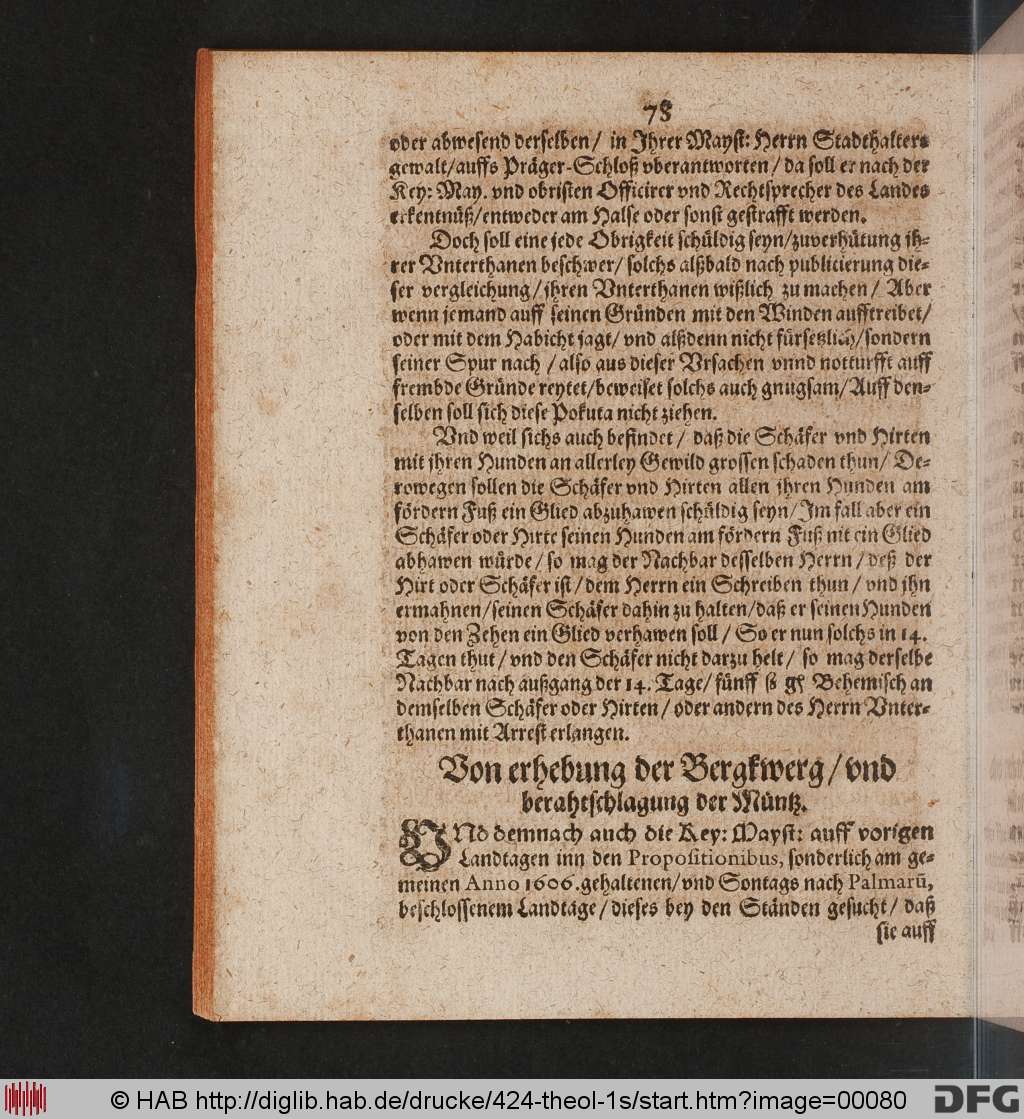 78
oder abwesend derselben / in Ihrer Mayst: Herrn Stadthalters
gewalt/auffs Präger-Schloß vberantworten / da soll er nach der
Key: May. vnd obristen Officirer vnd Rechtsprecher des Landes
erkentnüß/entweder am Halse oder sonst gestrafft werden.
Doch soll eine jede Obrigkeit schüldig seyn/zuverhütung jh-
rer Vnterthanen beschwer/ solchs alßbald nach publicierung die-
ser vergleichung/jhren Vnterthanen wißlich zu machen / Aber
wenn jemand auff seinen Gründen mit den Winden aufftreibet/
oder mit dem Habicht jagt/ vnd alßdenn nicht fürsetzlich/sondern
seiner Spur nach / also aus dieser Vrsachen vnnd notturfft auff
frembde Gründe reytet/beweiset solchs auch gnugsam/Auff den-
selben soll sich diese Pokuta nicht ziehen.
Vnd weil sichs auch befindet / daß die Schäfer vnd Hirten
mit jhren Hunden an allerley Gewild grossen schaden thun/ De-
rowegen sollen die Schäfer vnd Hirten allen jhren Hunden am
fördern Fuß ein Glied abzuhawen schüldig seyn/Im fall aber ein
Schäfer oder Hirte seinen Hunden am fördern Fuß nit ein Glied
abhawen würde / so mag der Nachbar desselben Herrn / deß der
Hirt oder Schäfer ist / dem Herrn ein Schreiben thun / vnd jhn
ermahnen/seinen Schäfer dahin zu halten/daß er seinen Hunden
von den Zehen ein Glied verhawen soll / So er nun solchs in 14.
Tagen thut / vnd den Schäfer nicht darzu helt / so mag derselbe
Nachbar nach außgang der 14. Tage/ fünff ß gl Behemisch an
demselben Schäfer oder Hirten / oder andern des Herrn Vnter-
thanen mit Arrest erlangen.
Von erhebung der Bergkwerg / vnd
berahtschlagung der Müntz.
VNd demnach auch die Key: Mayst: auff vorigen
Landtagen inn den Propositionibus, sonderlich am ge-
meinen Anno 1606.gehaltenen/vnd Sontags nach Palmarū,
beschlossenem Landtage / dieses bey den Ständen gesucht / daß
sie auff
© HAB http://diglib.hab.de/drucke/424-theol-1s/start.htm?image=00080
DFG